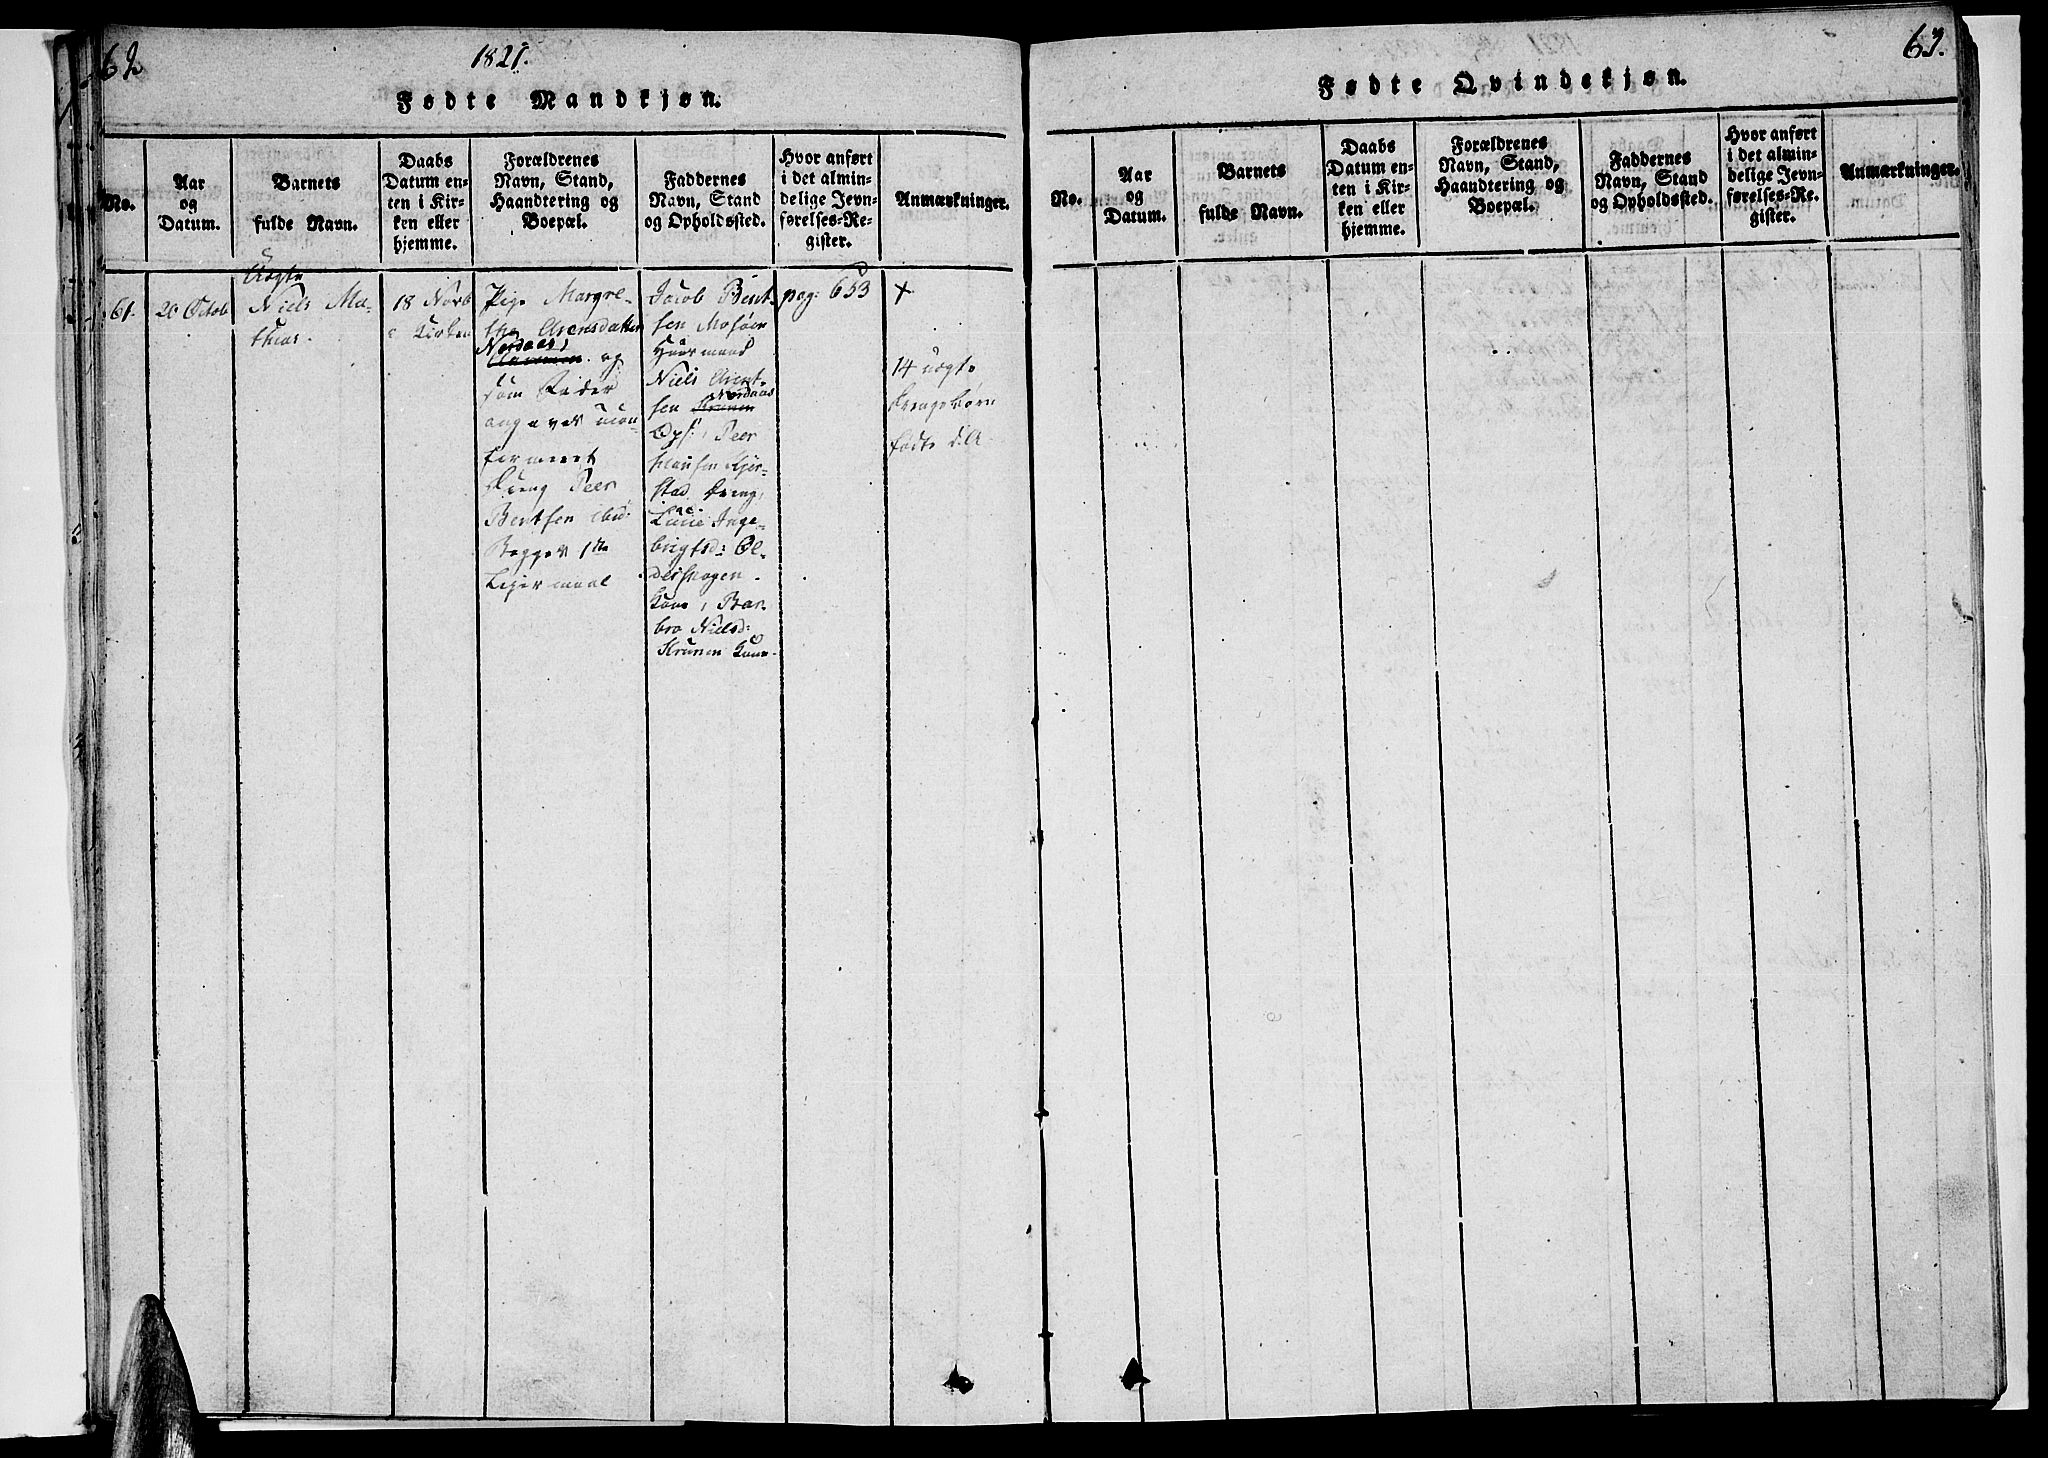 62
1821.
Fødte Mandkjøn.
No.
Aar
og
Datum.
Barnets
fulde Navn.
Daabs
Datum en-
ten i Kir-
ken eller
hjemme.
Forældrenes
Navn, Stand,
Haandtering og
Boepæl.
Faddernes
Navn, Stand
og Opholdssted.
Hvor anført
i det almin-
delige Jevn-
førelses-Re-
gister.
Anmærkninger.
61.
20 Octob
Uægte
Niels Ma-
thias.
18 Novb
i Kirken
Pige Margre-
the Arensdatter
Nordaas,
og
som Fader
angives ucon-
firmeret
Dreng Peer
Bentsen ibid:
Begges 1ste
Leiermaal
Jacob Bent-
sen Mosøen
Huusmand
Niels Arent-
sen Nordaas
Ops:, Peer
Hansen Kjer-
stad Dreng,
Lucie Inge-
brigtsd: Ol-
derskogen
Kone, Bar-
bro Nielsd:
Kone.
pag: 653
+
14 uægte
Drengebørn
fødte d: A
63.
Fødte Qvindekjøn.
No.
Aar
og
Datum.
Barnets
fulde Navn.
Daabs
Datum en-
ten i Kir-
ken eller
hjemme.
Forældrenes
Navn, Stand,
Haandtering og
Boepæl.
Faddernes
Navn, Stand
og Opholdssted.
Hvor anført
i det almin-
delige Jevn-
førelses-Re-
gister.
Anmærkninger.